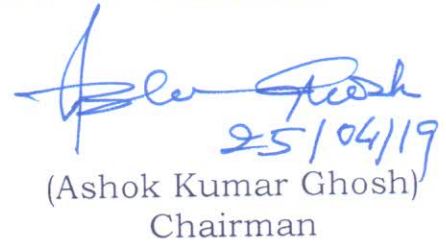 Ashok Ghosh
25/04/19
(Ashok Kumar Ghosh)
Chairman